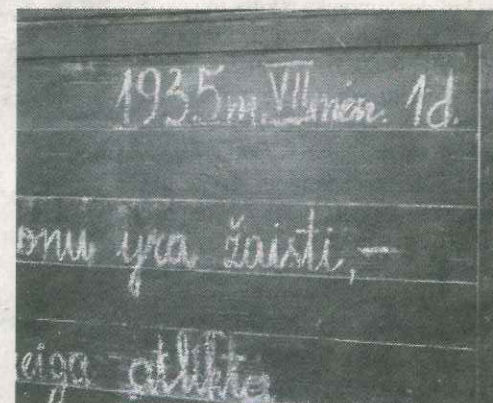 1935 m. VII mėn. 1 d.
onu yra žaisti, –
eiga atlikta